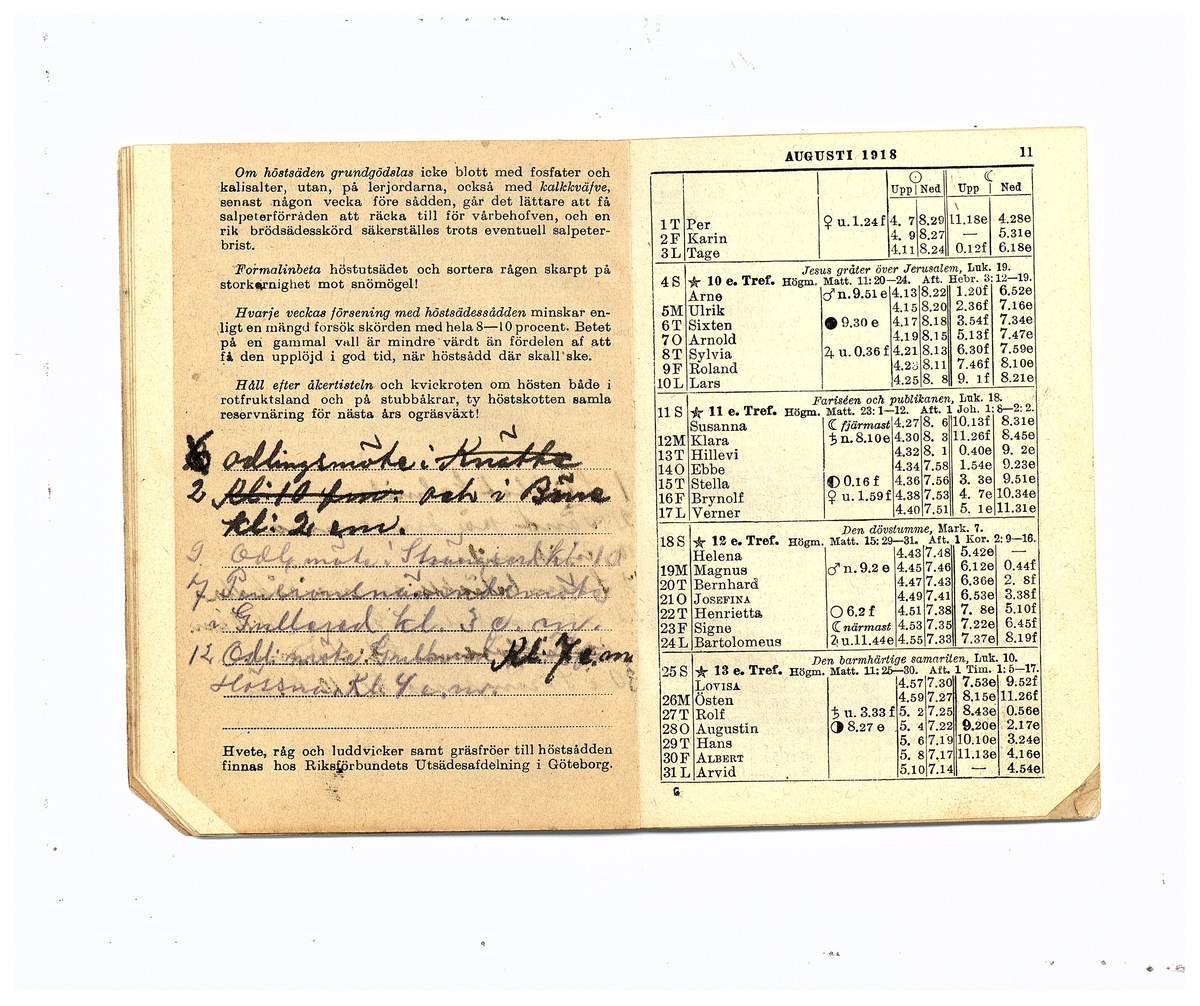 Om höstsäden grundgödslas icke blott med fosfater och
kalisalter, utan, på lerjordarna, också med kalkkväfve,
senast någon vecka före sådden, går det lättare att få
salpeterförråden att räcka till för vårbehofven, och en
rik brödsädesskörd säkerställes trots eventuell salpeter-
brist.
Formalinbeta höstutsädet och sortera rågen skarpt på
storkornighet mot snömögel!
Hvarje veckas försening med höstsädessådden minskar en-
ligt en mängd forsök skörden med hela 8—10 procent. Betet
på en gammal vall är mindre värdt än fördelen af att
få den upplöjd i god tid, när höstsådd där skall ske.
Håll efter åkertisteln och kvickroten om hösten både i
rotfruktsland och på stubbåkrar, ty höstskotten samla
reservnäring för nästa års ogräsväxt!
odlingsmöte i Knätte
2 kl. 10 fm. och i
kl. 2 em.
9. Odl. möte i kl. 10
7
i Gullered kl. 3 e. m.
12 Odl. möte Kl. 7 e. m
Hössna Kl. 4 e. m.
Hvete, råg och luddvicker samt gräsfröer till höstsådden
finnas hos Riksförbundets Utsädesafdelning i Göteborg.
AUGUSTI 1918 11
☉ ☾
Upp Ned Upp Ned
1 T Per ♀ u. 1.24 f 4. 7 8.29 11.18e 4.28e
2 F Karin 4. 9 8.27 — 5.31e
3 L Tage 4.11 8.24 0.12f 6.18e
Jesus gråter över Jerusalem, Luk. 19.
4 S ★ 10 e. Tref. Högm. Matt. 11: 20—24. Aft. Hebr. 3: 12—19.
Arne ♂ n. 9.51 e 4.13 8.22 1.20f 6.52e
5 M Ulrik 4.15 8.20 2.36f 7.16e
6 T Sixten ● 9.30 e 4.17 8.18 3.54f 7.34e
7 O Arnold 4.19 8.15 5.13f 7.47e
8 T Sylvia ♃ u. 0.36 f 4.21 8.13 6.30f 7.59e
9 F Roland 4.23 8.11 7.46f 8.10e
10 L Lars 4.25 8. 8 9. 1f 8.21e
Fariséen och publikanen, Luk. 18.
11 S ★ 11 e. Tref. Högm. Matt. 23: 1—12. Aft. 1 Joh. 1: 8—2: 2.
Susanna ☾ fjärmast 4.27 8. 6 10.13f 8.31e
12 M Klara ♄ n. 8.10e 4.30 8. 3 11.26f 8.45e
13 T Hillevi 4.32 8. 1 0.40e 9. 2e
14 O Ebbe 4.34 7.58 1.54e 9.23e
15 T Stella ◐ 0.16 f 4.36 7.56 3. 3e 9.51e
16 F Brynolf ♀ u. 1.59 f 4.38 7.53 4. 7e 10.34e
17 L Verner 4.40 7.51 5. 1e 11.31e
Den dövstumme, Mark. 7.
18 S ★ 12 e. Tref. Högm. Matt. 15: 29—31. Aft. 1 Kor. 2: 9—16.
Helena 4.43 7.48 5.42e —
19 M Magnus ♂ n. 9.2 e 4.45 7.46 6.12e 0.44f
20 T Bernhard 4.47 7.43 6.36e 2. 8f
21 O JOSEFINA 4.49 7.41 6.53e 3.38f
22 T Henrietta ○ 6.2 f 4.51 7.38 7. 8e 5.10f
23 F Signe ☾ närmast 4.53 7.35 7.22e 6.45f
24 L Bartolomeus ♃ u. 11.44e 4.55 7.33 7.37e 8.19f
Den barmhärtige samariten, Luk. 10.
25 S ★ 13 e. Tref. Högm. Matt. 11: 25—30. Aft. 1 Tim. 1: 5—17.
LOVISA 4.57 7.30 7.53e 9.52f
26 M Östen 4.59 7.27 8.15e 11.26f
27 T Rolf ♄ u. 3.33 f 5. 2 7.25 8.43e 0.56e
28 O Augustin ◑ 8.27 e 5. 4 7.22 9.20e 2.17e
29 T Hans 5. 6 7.19 10.10e 3.24e
30 F ALBERT 5. 8 7.17 11.13e 4.16e
31 L Arvid 5.10 7.14 — 4.54e